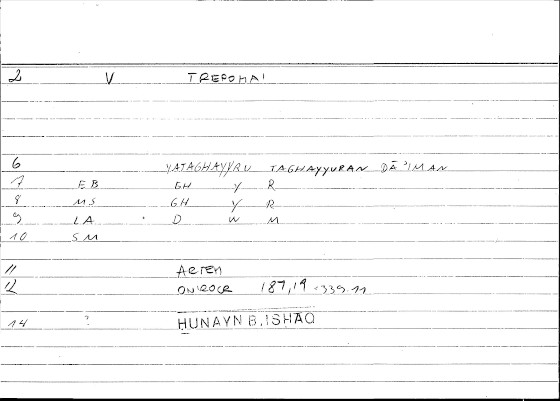 2 V TREPOMAI
6 YATAGHAYYRU TAGHAYYURAN DĀ'IMAN
7 EB GH Y R
8 MS GH Y R
9 LA D W M
10 SM
11 ARTEM
12 ONIROCR 187,19 - 339.11
14 ? HUNAYN B. ISHĀQ